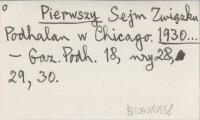 Pierwszy Sejm Związku
Podhalan w Chicago. 1930...
— Gaz. Podh. 18, nry 28,
29, 30.